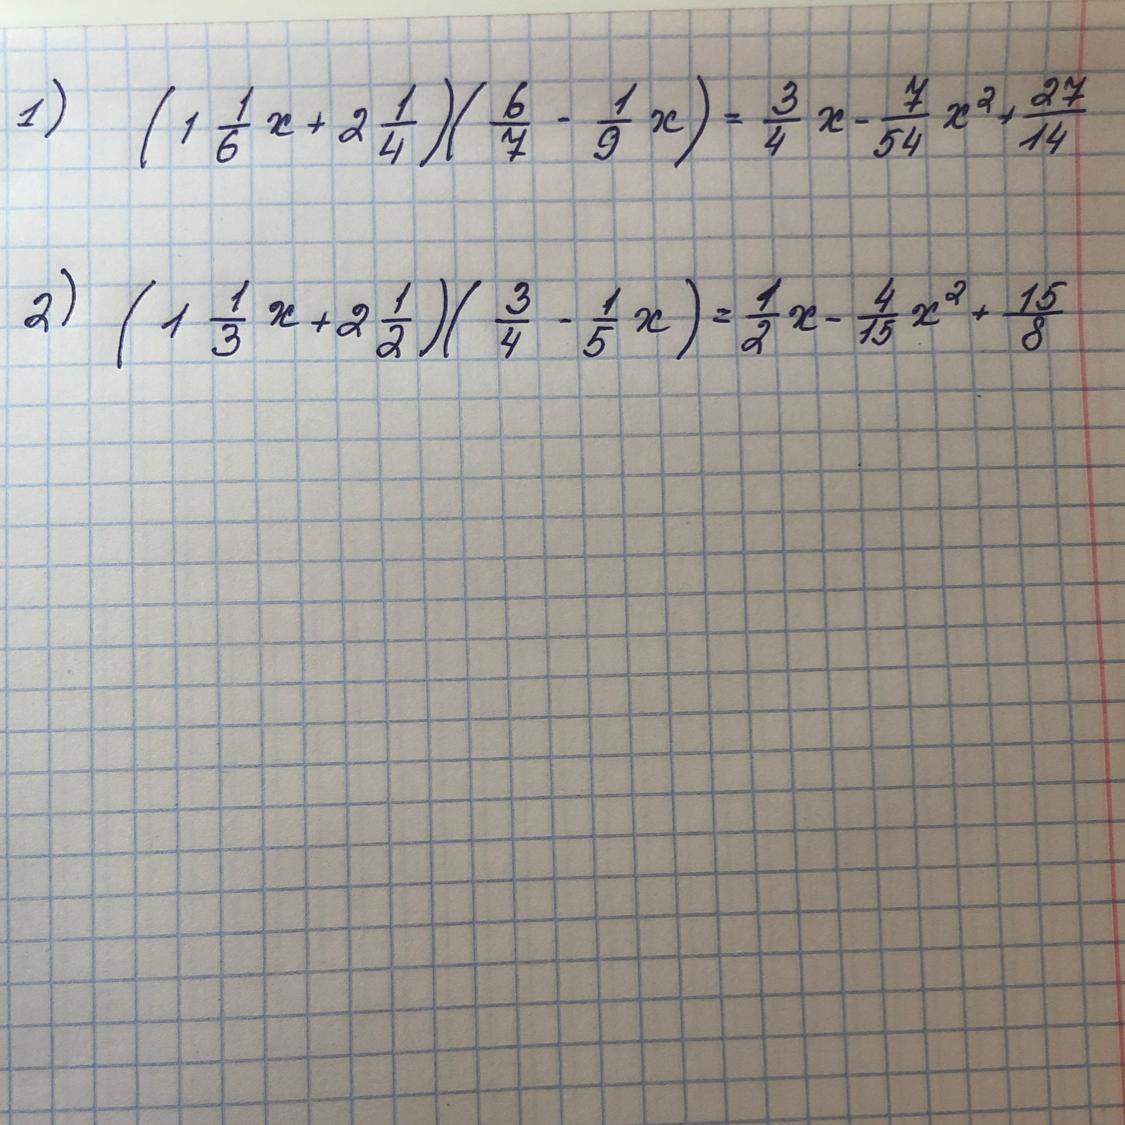 1) (1 1/6 x + 2 1/4)(6/7 - 1/9 x) = 3/4 x - 7/54 x² + 27/14
2) (1 1/3 x + 2 1/2)(3/4 - 1/5 x) = 1/2 x - 4/15 x² + 15/8